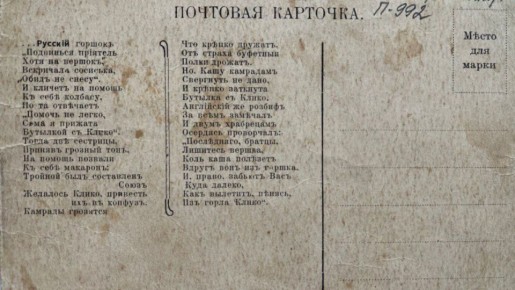 ПОЧТОВАЯ КАРТОЧКА.
П-992
Мѣсто
для
марки
„Русскій горшокъ
„Подвинься прiятель
Хотя на вершокъ“.
Вскричала сосиська,
„Обилъ не снесу“.
И кличетъ на помощь
Къ себѣ колбасу,
Но та отвѣчаетъ
„Помочь не легко,
Сама я прижата
Бутылкой съ Клико“.
Тогда двѣ сестрицы,
Принявъ грозный тонъ,
На помощь позвали
Къ себѣ макаронъ
Тройной былъ составленъ
Союзъ
Желалось Клико, привесть
ихъ въ конфузъ.
Камралы грозятся
Что крѣпко дружатъ,
Отъ страха буфетныя
Полки дрожатъ.
Но, Кашу камрадамъ
Свергнуть не дано,
И крѣпко заткнута
Бутылка съ Клико,
Англійскій же розбифъ
За всѣмъ замѣчалъ
И двумъ храбрецамъ
Осердясь проворчалъ:
„Послѣдняго, братцы,
Лишитесь вершка,
Коль каша ползетъ
Вдругъ вонъ изъ горшка.
И, право, забьетъ Васъ
Куда далеко,
Какъ вылетитъ, пѣнясь,
Изъ горла Клико“.